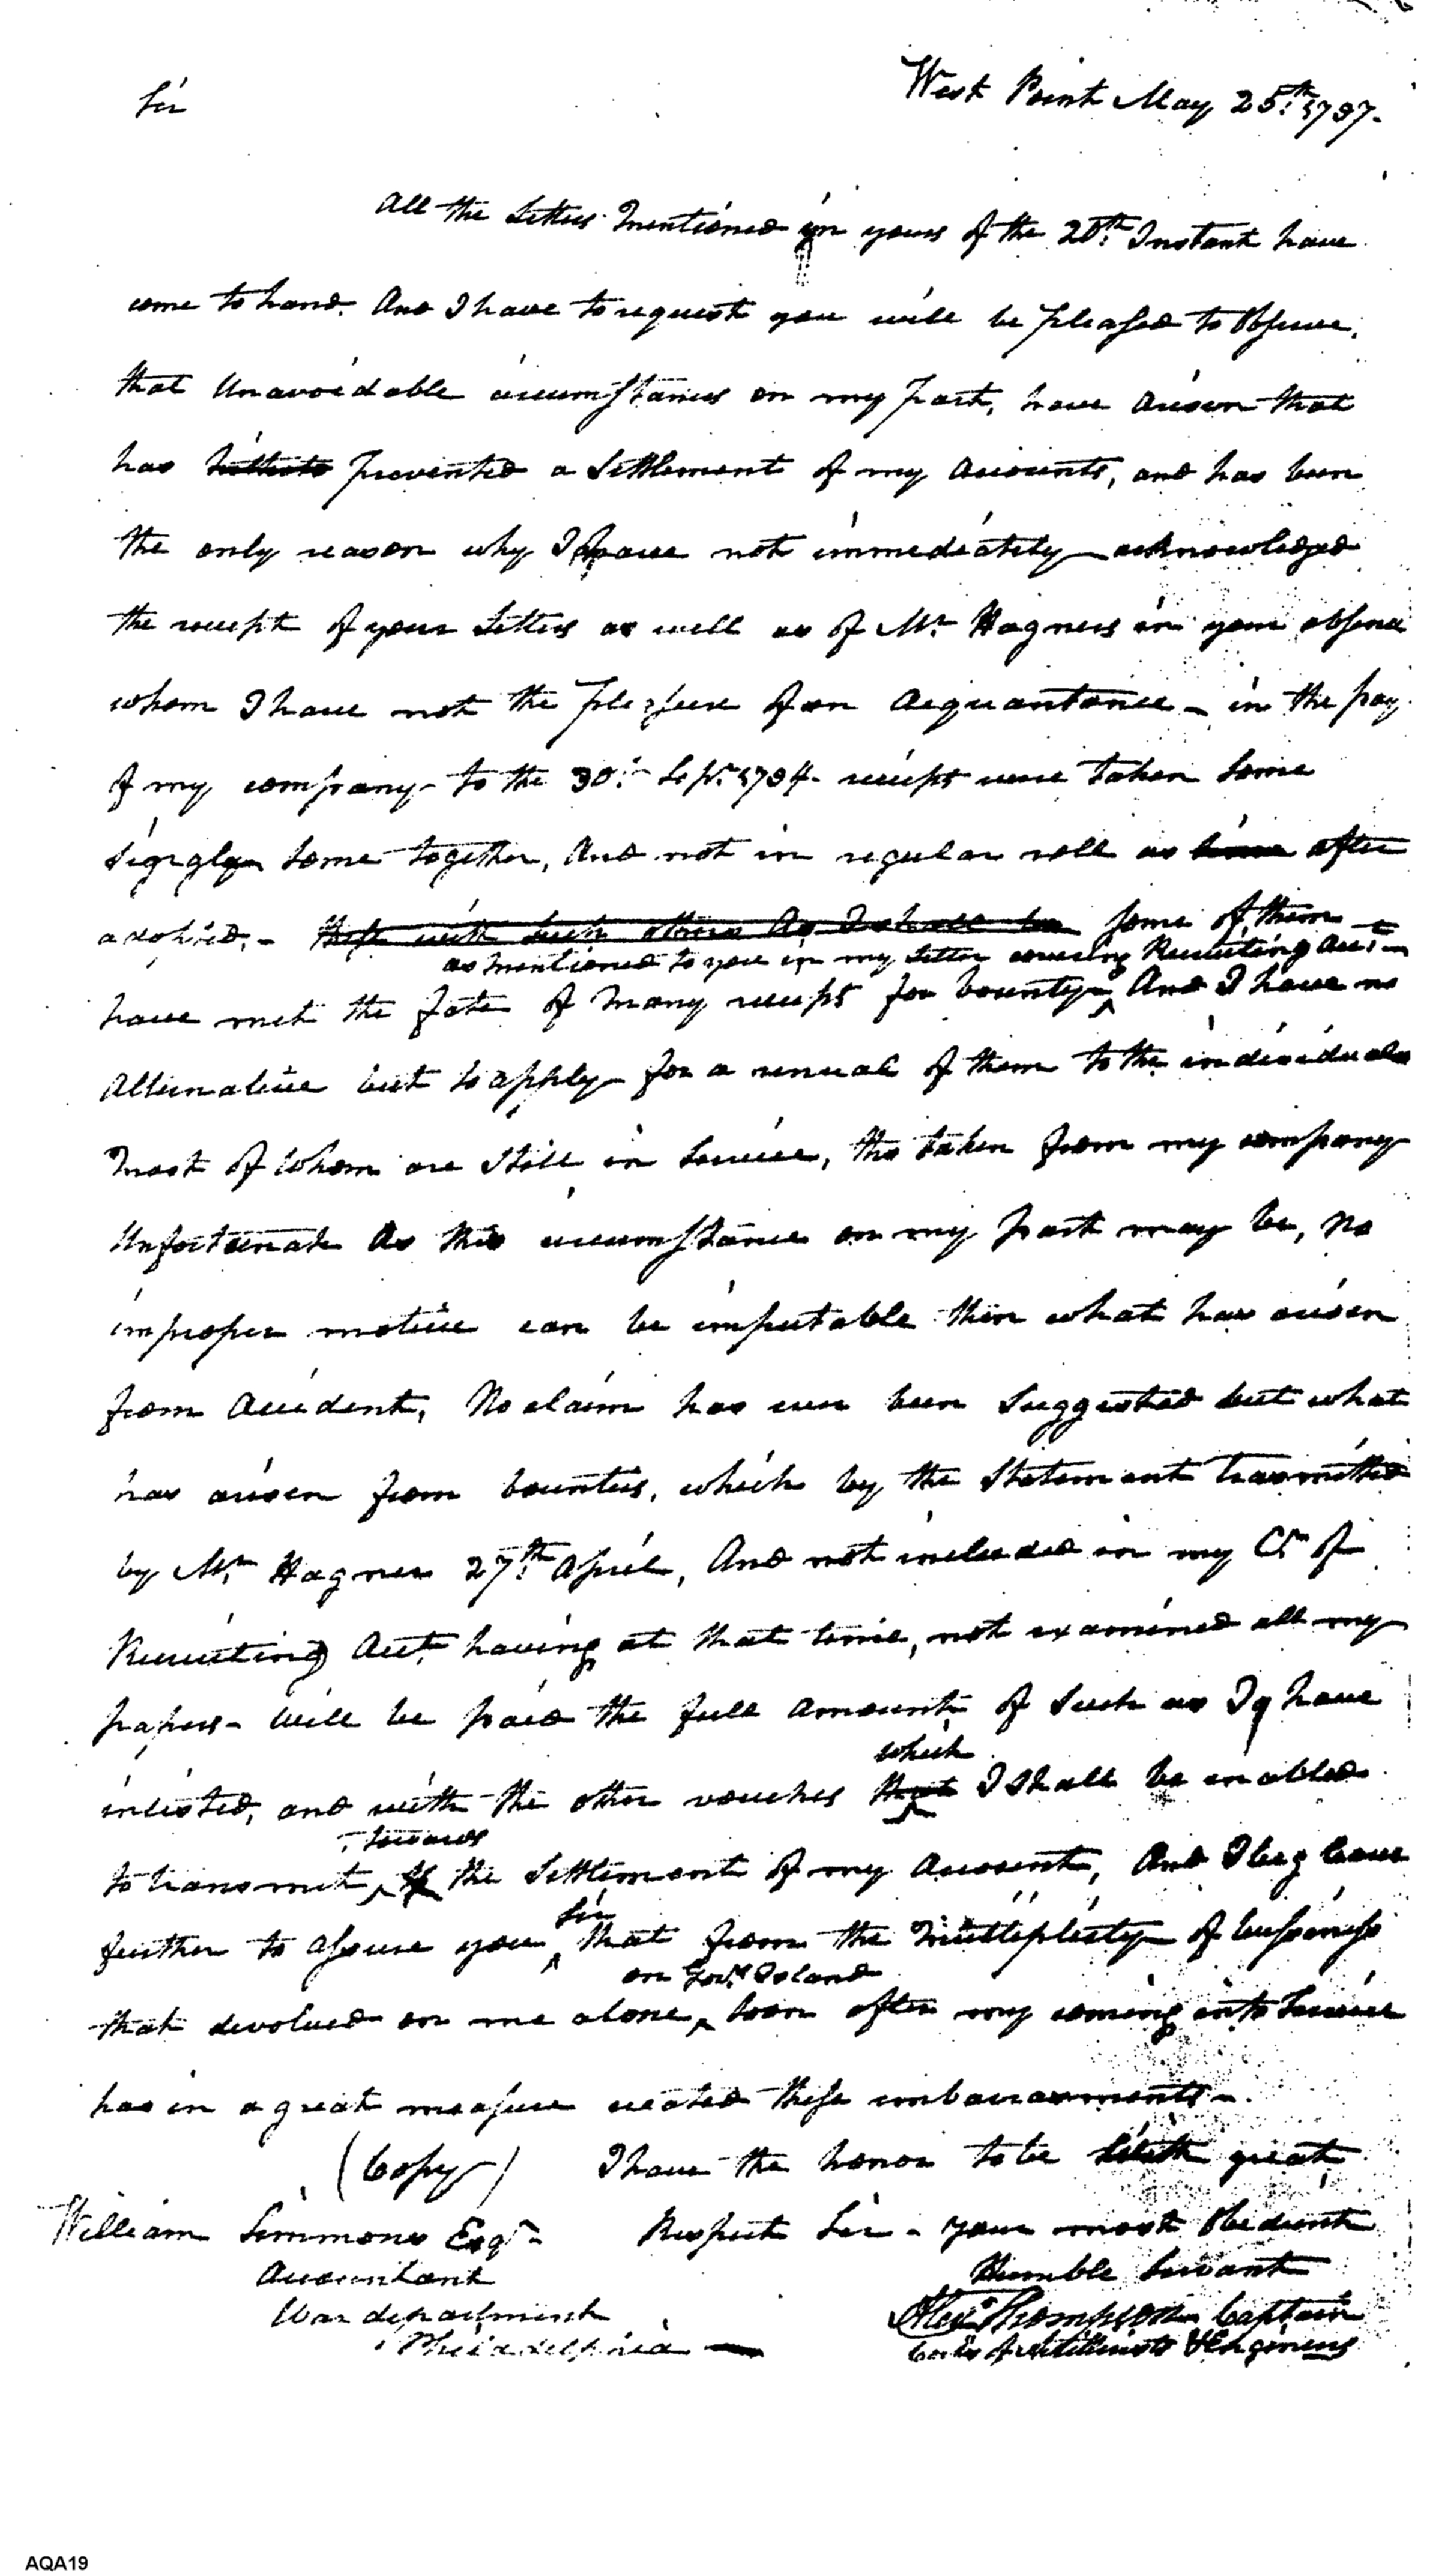 West Point May 25th 1797.
Sir
All the Letters mentioned in yours of the 20th Instant have
come to hand. And I have to request you will be pleased to Observe,
that Unavoidable circumstances on my part, have arisen that
has hitherto prevented a Settlement of my Accounts, and has been
the only reason why I have not immediately acknowledged
the receipt of your Letters as well as of Mr Hagners in your absence
whom I have not the pleasure of an Acquantance - in the pay
of my company to the 30th Sepr 1794. receipts were taken Some
Singly Some together, And not in regular roll as since after
adopted. - These with such others As I shall be some of them
as mentioned to you in my Letter covering Recruiting Acct
have met the fate of many receipts for bounty, And I have no
Alternative but to apply for a renual of them to the individuals
most of whom are Still in Service, tho taken from my company
Unfortunate As this circumstance on my part may be, no
improper motive can be imputable then what has arisen
from Accident, No claim has ever been Suggested but what
has arisen from bounties, which by the Statement trasmitted
by Mr Hagner 27th April, And not included in my of
Recruiting Acct. having at that time, not examined all my
papers - will be paid the full Amount of Such as I have
which
inlisted, and with the other vouches that I Shall be enabled
towards
to transmit, the Settlement of my Accounts, And I beg leave
Sir
further to assure you, that from the Multiplisity of bussiness
on Govrs Island
that devolved on me alone, Soon after my coming into Service
has in a great measure created these embarrasments -.
(Copy) I have the honor to be with great
William Simmons Esqr Respect Sir - your most Obedient
Accountant Humble Servant
War department Alexr Thompson Captain
Philadelphia Corps Artillerists & Engineers
AQA19